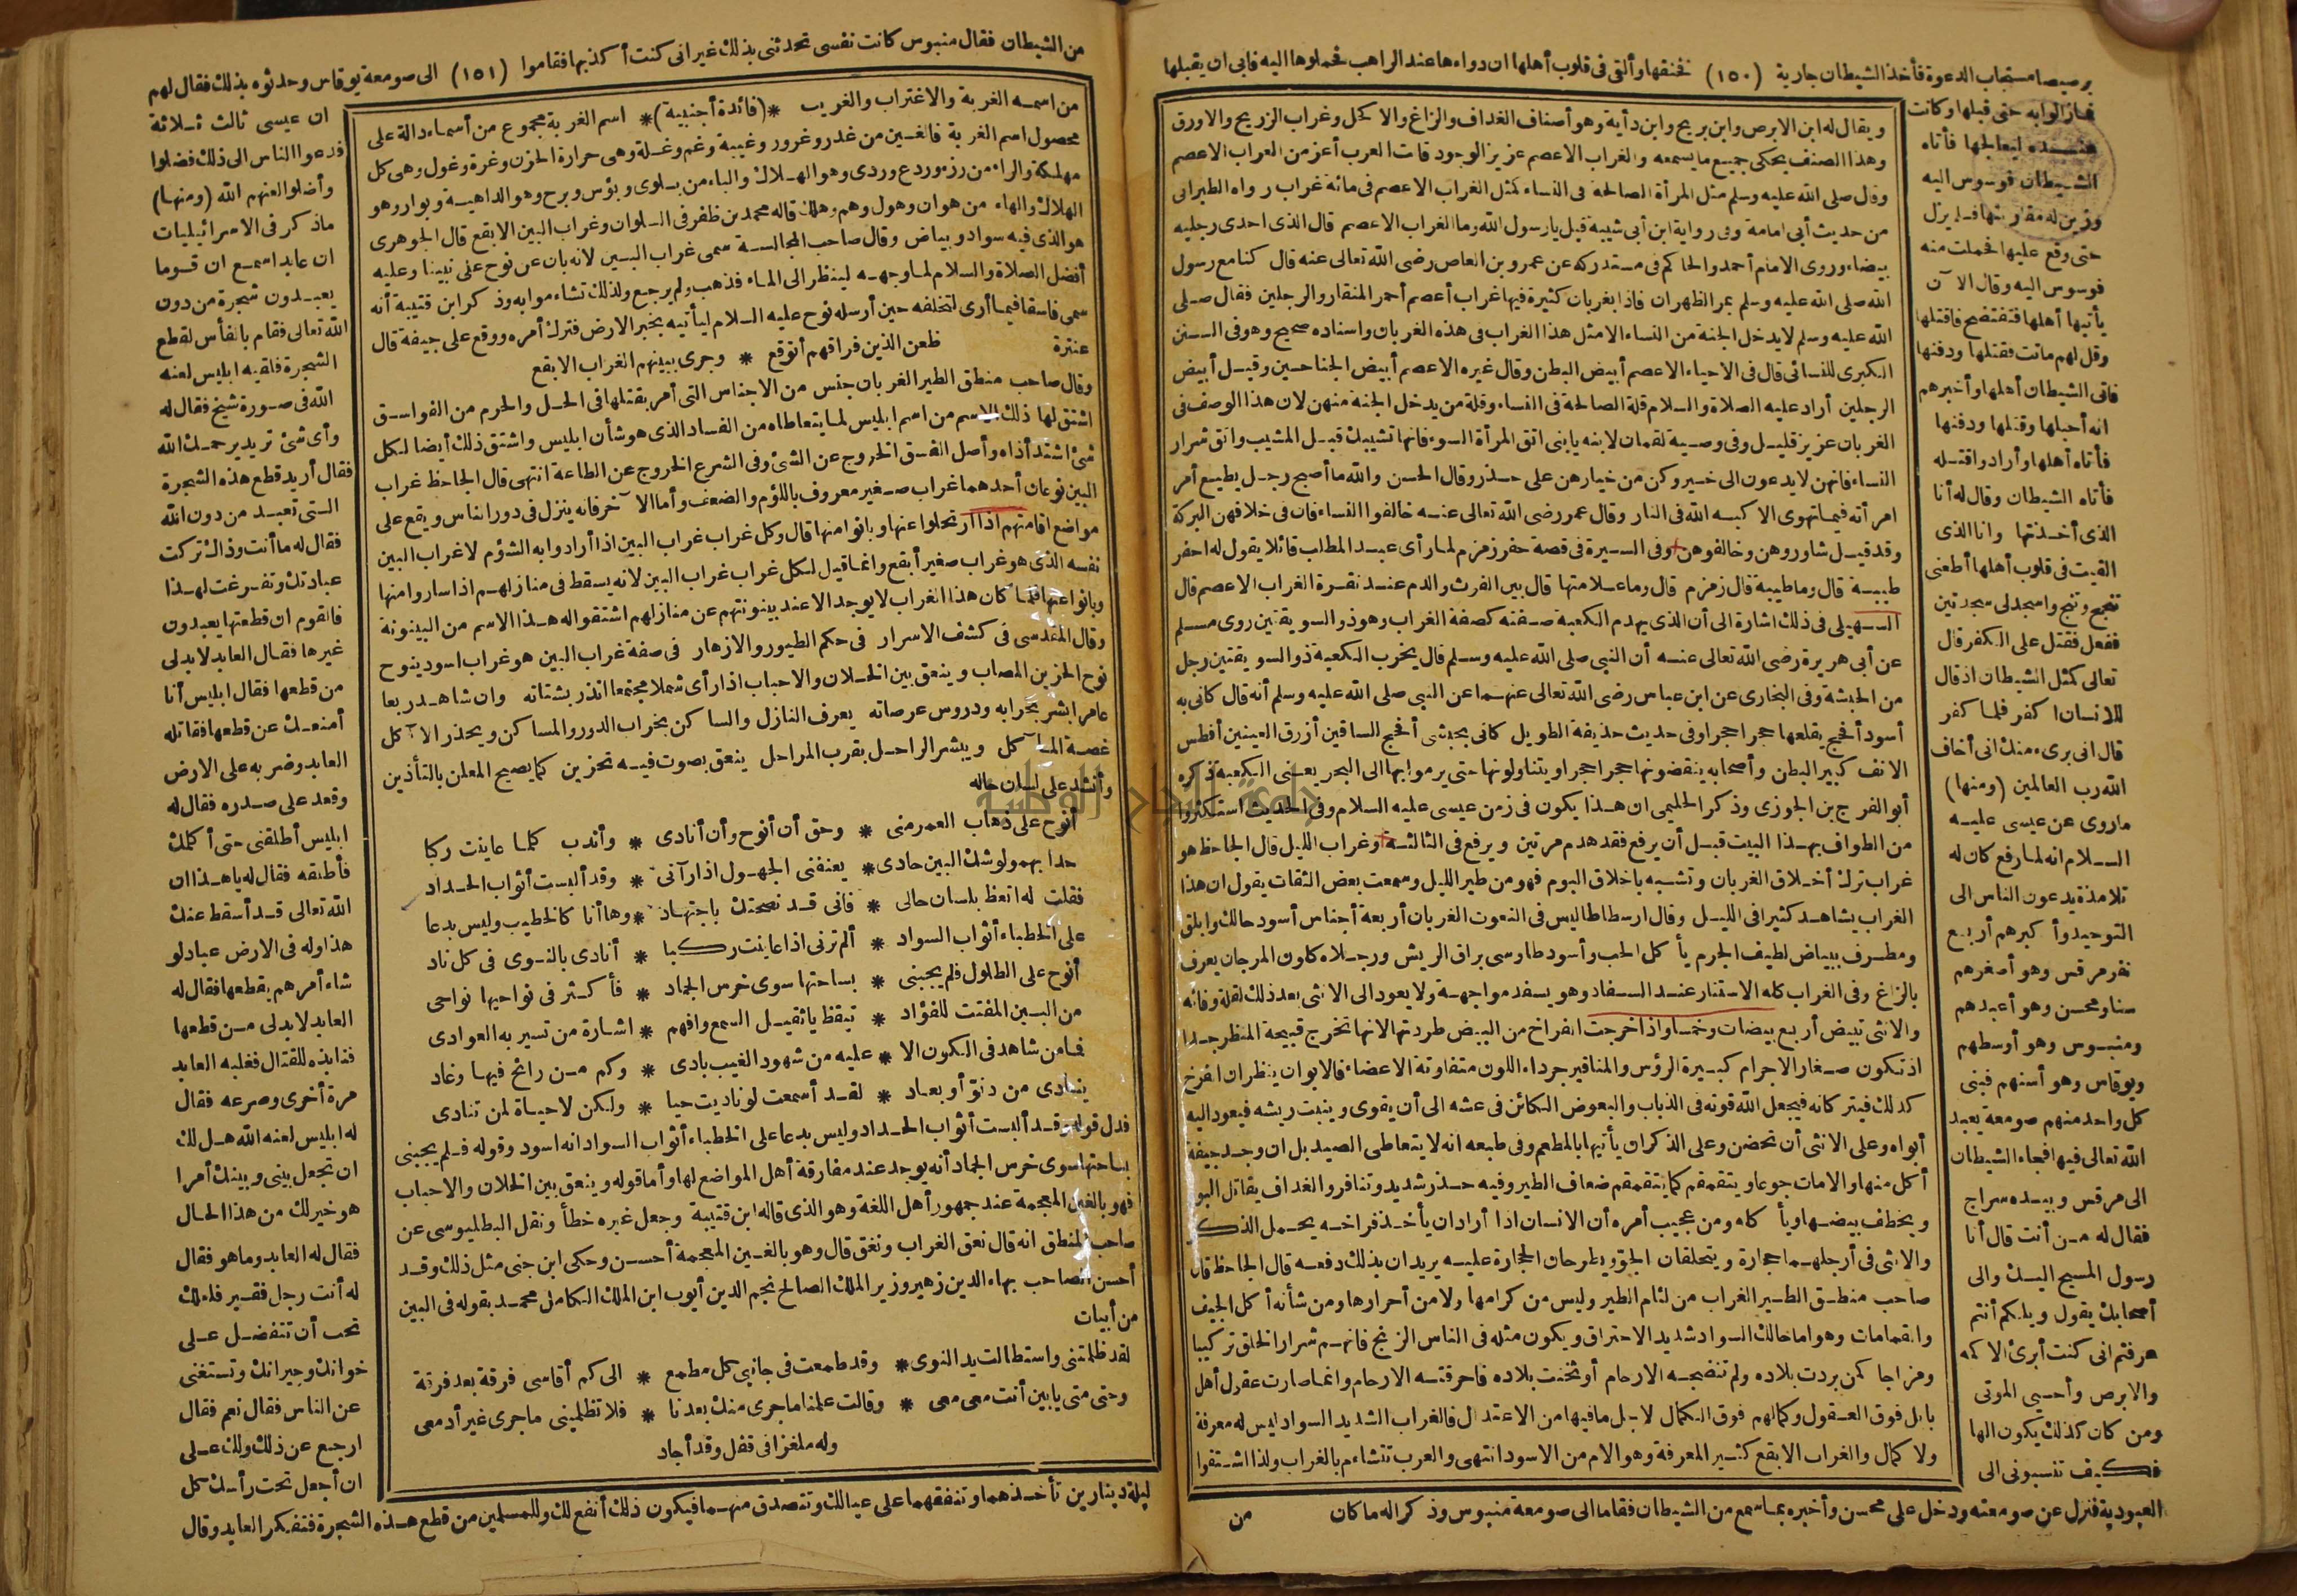 برصيصا مستجاب الدعوة فأخذ الشيطان جارية (١٥٠) فخنقها وألقى فى قلوب أهلها ان دواءها عند الراهب فحملوها اليه فابى ان يقبلها
فما زالوا به حتى قبلها وكانت
عنــده ليعالجها فأتاه
الشيطان فوسوس اليه
وزين له مقاربتها فلم يزل
حتى وقع عليها فحملت منه
فوسوس اليه وقال الآن
يأتيها أهلها فتفتضح فاقتلها
وقل لهم ماتت فقتلها ودفنها
فاتى الشيطان أهلها وأخبرهم
انه أحبلها وقتلها ودفنها
فأتاه أهلها وأرادوا قتــله
فأتاه الشيطان وقال له أنا
الذى أخذتها وانا الذى
القيت فى قلوب أهلها أطعنى
تنج واسجد لى سجدتين
ففعل فقتل على الكفر قال
تعالى كمثل الشيطان اذ قال
للانسان اكفر فلما كفر
قال انى برىء منك انى أخاف
الله رب العالمين (ومنها)
ماروى عن عيسى عليــه
الســلام انه لما رفع كان له
تلامذة يدعون الناس الى
التوحيد وأكبرهم أربع
نفر مرقس وهو أصغرهم
سنا ومحسن وهو أعبدهم
ومنبــوس وهو أوسطهم
وبوقاس وهو أسنهم فبنى
كل واحد منهم صومعة يعبد
الله تعالى فيها فجاء الشيطان
الى مرقس وبيــده سراج
فقال له مــن أنت قال أنا
رسول المسيح اليــك والى
أصحابك يقول ويلكم أنتم
عرفتم انى كنت أبرئ الاكمه
والابرص وأحــيى الموتى
ومن كان كذلك يكون الها
فكيف تنسبونى الى
العبودية فنزل عن صومعته ودخل على محسن وأخبره بما سمع من الشيطان فقاما الى صومعة منبوس وذكرا له ما كان
ويقال له ابن الابرص وابن بريح وابن دأية وهو أصناف الغداف والزاغ والاكحل وغراب الزرع والاورق
وهذا الصنف يحكى جميع ما يسمعه والغراب الاعصم عزيز الوجود قالت العرب أعز من الغراب الاعصم
وقال صلى الله عليه وسلم مثل المرأة الصالحة فى النساء كمثل الغراب الاعصم فى مائة غراب رواه الطبرانى
من حديث أبى امامة وفى رواية ابن أبى شيبة قيل يا رسول الله وما الغراب الاعصم قال الذى احدى رجليه
بيضاء وروى الامام أحمد والحاكم فى مستدركه عن عمرو بن العاص رضى الله تعالى عنه قال كنا مع رسول
الله صلى الله عليه وسلم بمر الظهران فاذا بغربان كثيرة فيها غراب أعصم أحمر المنقار والرجلين فقال صــلى
الله عليه وسلم لا يدخل الجنة من النساء الا مثل هذا الغراب فى هذه الغربان واسناده صحيح وهو فى الســنن
الكبرى للنسائى قال فى الاحياء الاعصم أبيض البطن وقال غيره الاعصم أبيض الجناحين وقيــل أبيض
الرجلين أراد عليه الصلاة والسلام قلة الصالحة فى النساء وقلة من يدخل الجنة منهن لان هذا الوصف فى
الغربان عزيز قليــل وفى وصــية لقمان لابنه يا بنى اتق المرأة السوء فانها تشيبك قبــل المشيب واتق شرار
النساء فانهن لا يدعون الى خــير وكن من خيارهن على حــذر وقال الحسن والله ما أصبح رجــل يطيع أمر
امرأته فيما تهوى الا كبــه الله فى النار وقال عمر رضى الله تعالى عنــه خالفوا النساء فان فى خلافهن البركة
وقد قيــل شاوروهن وخالفوهن وفى الســيرة فى قصة حفر زمزم لما رأى عبــد المطلب قائلا يقول له احفر
طيبــة قال وما طيبة قال زمزم قال وما علامتها قال بين الفرث والدم عنــد نقــرة الغراب الاعصم قال
الســهيلى فى ذلك اشارة الى أن الذى يهدم الكعبة صــفته كصفة الغراب وهو ذو السويقتين روى مســلم
عن أبى هريرة رضى الله تعالى عنــه أن النبى صلى الله عليه وســلم قال يخرب الكعبة ذو السويقتين رجل
من الحبشة وفى البخارى عن ابن عباس رضى الله تعالى عنهــما عن النبى صلى الله عليه وسلم أنه قال كانى به
أسود أفحج يقلعها حجرا حجرا وفى حديث حذيفة الطويل كانى بحبشى أفحج الساقين أزرق العينين أفطس
الانف كبير البطن وأصحابه ينقضونها حجرا حجرا ويتناولونها حتى يرموا بها الى البحر يعــنى الكعبة ذكره
أبو الفرج بن الجوزى وذكر الحليمى ان هــذا يكون فى زمن عيسى عليه السلام وفى الحديث استكثروا
من الطواف بهــذا البيت قبــل أن يرفع فقد هدم مرتين ويرفع فى الثالثــة وغراب الليل قال الجاحظ هو
غراب ترك أخــلاق الغربان وتشــبه باخلاق البوم فهو من طير الليل وسمعت بعض الثقات يقول ان هذا
الغراب يشاهــد كثيرا فى الليــل وقال ارسطاطاليس فى النعوت الغربان أربعة أجناس أسود حالك وابلق
ومطــرف ببياض لطيف الجرم يأكل الحب وأسود طاوسى براق الريش ورجــلاه كلون المرجان يعرف
بالزاغ وفى الغراب كله الاستتار عنــد الســفاد وهو يسفد مواجهــة ولا يعود الى الانثى بعد ذلك لقلة وفائه
والانثى تبيض أربع بيضات وخمسا واذا خرجت الفراخ من البيض طردتها لانها تخرج قبيحة المنظر جــدا
اذ تكون صــغار الاجرام كبــيرة الرؤس والمناقير جرداء اللون متفاوتة الاعضاء فالابوان ينظران الفرخ
كذلك فيتركانه فيجعل الله قوته فى الذباب والبعوض الكائن فى عشه الى أن يقوى وينبت ريشه فيعود اليه
أبواه وعلى الانثى أن تحضن وعلى الذكر ان يأتيها بالمطعم وفى طبعه انه لا يتعاطى الصيد بل ان وجــد جيفة
أكل منها والا مات جوعا ويتقمقم كما يتقمقم ضعاف الطير وفيه حــذر شديد وتنافر والغداف يقاتل البو
ويخطف بيضــها ويأكله ومن عجيب أمره أن الانسان اذا أراد ان يأخــذ فراخــه يحــمل الذكــر
والانثى فى أرجلهــما حجارة ويتحلقان الجو ويطرحان الحجارة عليــه يريدان بذلك دفعــه قال الجاحظ قال
صاحب منطــق الطــير الغراب من لئام الطير وليس من كرامها ولا من أحرارها ومن شأنه أكل الجيف
والقمامات وهو اما حالك السواد شديد الاحتراق ويكون مثله فى الناس الزنج فانهــم شرار الخلق تركيبا
ومزاجا كمن بردت بلاده ولم تنضجــه الارحام أو سخنت بلاده فاحرقتــه الارحام وانما صارت عقول أهل
بابل فوق العــقول وكمالهم فوق الكمال لاجــل ما فيها من الاعتدال فالغراب الشديد السواد ليس له معرفة
ولا كمال والغراب الابقع كثــير المعرفة وهو ألام من الاسود انتهى والعرب تتشاءم بالغراب ولذا اشــتقوا
من
من الشيطان فقال منبوس كانت نفسى تحدثنى بذلك غير انى كنت أكذبها فقاموا (١٥١) الى صومعة بوقاس وحدثوه بذلك فقال لهم
من اسمــه الغربة والاغتراب والغريب *(فائدة أجنبية)* اسم الغربة مجموع من أسماء دالة على
محصول اسم الغربة فالغــين من غدر وغرور وغيبة وغم وغــلة وهى حرارة الحزن وغرة وغول وهى كل
مهلكة والراء من رزء وردع وردى وهو الهــلاك والباء من بــلوى وبؤس وبرح وهو الداهيــة وبوار وهو
الهلاك والهاء من هوان وهول وهم وهلك قاله محمد بن ظفر فى السلوان وغراب البين الابقع قال الجوهرى
هو الذى فيه سواد وبياض وقال صاحب المجالســة سمى غراب البــين لانه بان عن نوح على نبينا وعليه
أفضل الصلاة والسلام لما وجهــه لينظر الى المــاء فذهب ولم يرجع ولذلك تشاءموا به وذكر ابن قتيبة أنه
سمى فاسقا فيما أرى لتخلفه حين أرسله نوح عليه السلام ليأتيه بخبر الارض فترك أمره ووقع على جيفة قال
عنترة ظعن الذين فراقهم أتوقع * وجرى ببينهم الغراب الابقع
وقال صاحب منطق الطير الغربان جنس من الاجناس التى أمر بقتلها فى الحــل والحرم من الفواســق
اشتق لها ذلك الاسم من اسم ابليس لما يتعاطاه من الفساد الذى هو شأن ابليس واشتق ذلك أيضا لكل
شئ اشتد أذاه وأصل الفســق الخروج عن الشئ وفى الشرع الخروج عن الطاعة انتهى قال الجاحظ غراب
البين نوعان أحدهما غراب صــغير معروف باللؤم والضعف وأما الآخر فانه ينزل فى دور الناس ويقع على
مواضع اقامتهم اذا ارتحلوا عنها وبانوا منها قال وكل غراب غراب البين اذا أرادوا به الشؤم لا غراب البين
نفسه الذى هو غراب صغير أبقع وانما قيل لكل غراب غراب البين لانه يسقط فى منازلهــم اذا ساروا منها
وبانوا عنها فلما كان هذا الغراب لا يوجد الا عند بينونتهم عن منازلهم اشتقوا له هــذا الاسم من البينونة
وقال المقدسى فى كشف الاسرار فى حكم الطيور والازهار فى صفة غراب البين هو غراب اسود ينوح
نوح الحزين المصاب وينعق بين الخــلان والاحباب اذا رأى شملا مجتمعا انذر بشتاته وان شاهــد ربعا
عامرا بشر بخرابه ودروس عرصاته يعرف النازل والساكن بخراب الدور والمساكن ويحذر الآكل
غصــة المآكل ويبشر الراحــل بقرب المراحل ينعق بصوت فيــه تحزين كما يصيح المعلن بالتأذين
وأنشد على لسان حاله
أنوح على ذهاب العمر منى * وحق أن أنوح وأن أنادى * وأندب كلمــا عاينت ركبا
حدا بهمو لوشك البين حادى * يعنفنى الجهــول اذا رآنى * وقد ألبست أثواب الحــداد
فقلت له اتعظ بلسان حالى * فانى قــد نصحتك باجتهــاد * وها أنا كالخطيب وليس بدعا
على الخطباء أثواب السواد * ألم ترنى اذا عاينت ركــبا * أنادى بالنــوى فى كل ناد
أنوح على الطلول فلم يجبنى * بساحتها سوى خرس الجماد * فأكــثر فى نواحيها نواحى
من البــين المفتت للفؤاد * تيقظ يا ثقيــل السمع وافهم * اشــارة من تسير به العوادى
فما من شاهد فى الكون الا * عليه من شهود الغيب بادى * وكم مــن رائح فيهــا وغاد
ينــادى من دنو أو بعــاد * لقــد أسمعت لو ناديت حيا * ولكن لا حيــاة لمن تنادى
فدل قوله وقــد ألبست أثواب الحــداد وليس بدعا على الخطباء أثواب السواد انه اسود وقوله فــلم يجبنى
بساحتها سوى خرس الجماد أنه يوجد عند مفارقة أهل المواضع لها وأما قوله وينعق بين الخلان والاحباب
فهو بالغين المعجمة عند جمهور أهل اللغة وهو الذى قاله ابن قتيبة وجعل غيره خطأ ونقل البطليوسى عن
صاحب المنطق انه قال نعق الغراب ونغق قال وهو بالغــين المعجمة أحســن وحكى ابن جنى مثل ذلك وقــد
أحسن الصاحب بهاء الدين زهير وزير الملك الصالح نجم الدين أيوب ابن الملك الكامل محمــد بقوله فى البين
من أبيات
لقد ظلمتنى واستطالت يد النوى * وقد طمعت فى جانبى كل مطمع * الى كم أقاسى فرقة بعد فرقة
وحتى متى يا بين أنت معى معى * وقالت علمنا ما جرى منك بعدنا * فلا تظلمينى ما جرى غير أدمعى
وله ملغزا فى قفل وقد أجاد
ان عيسى ثالث ثــلاثة
فدعوا الناس الى ذلك فضلوا
وأضلوا لعنهم الله (ومنهــا)
ماذكر فى الاسرائيليات
ان عابدا سمــع ان قــوما
يعبــدون شجرة من دون
الله تعالى فقام بالفأس لقطع
الشجرة فلقيه ابليس لعنه
الله فى صــورة شيخ فقال له
وأى شئ تريد يرحمــك الله
فقال أريد قطع هذه الشجرة
الــتى تعبــد من دون الله
فقال له ما أنت وذاك تركت
عبادتك وتفــرغت لهــذا
فالقوم ان قطعتها يعبدون
غيرها فقــال العابد لا بد لى
من قطعها فقال ابليس أنا
أمنعــك عن قطعها فقاتله
العابد وضربه على الارض
وقعد على صــدره فقال له
ابليس أطلقنى حتى أكلمك
فأطلقه فقال له يا هــذا ان
الله تعالى قــد أسقط عنك
هذا وله فى الارض عباد لو
شاء أمرهم بقطعها فقال له
العابد لا بد لى مــن قطعها
فنابذه للقتال فغلبه العابد
مرة أخرى وصرعه فقال
له ابليس لعنه الله هــل لك
ان تجعل بينى وبينك أمرا
هو خير لك من هذا الحال
فقال له العابد وما هو فقال
له أنت رجل فقــير فلعلك
تحب أن تتفضــل عــلى
خوانك وجيرانك وتستغنى
عن الناس فقال نعم فقال
ارجع عن ذلك ولك عــلى
ان أجعل تحت رأسك كل
ليلة دينارين تأخــذهما وتنفقهما على عيالك وتتصدق منهــما فيكون ذلك أنفع لك وللمسلمين من قطع هــذه الشجرة فتفكر العابد وقال
جامعة النجاح الوطنية